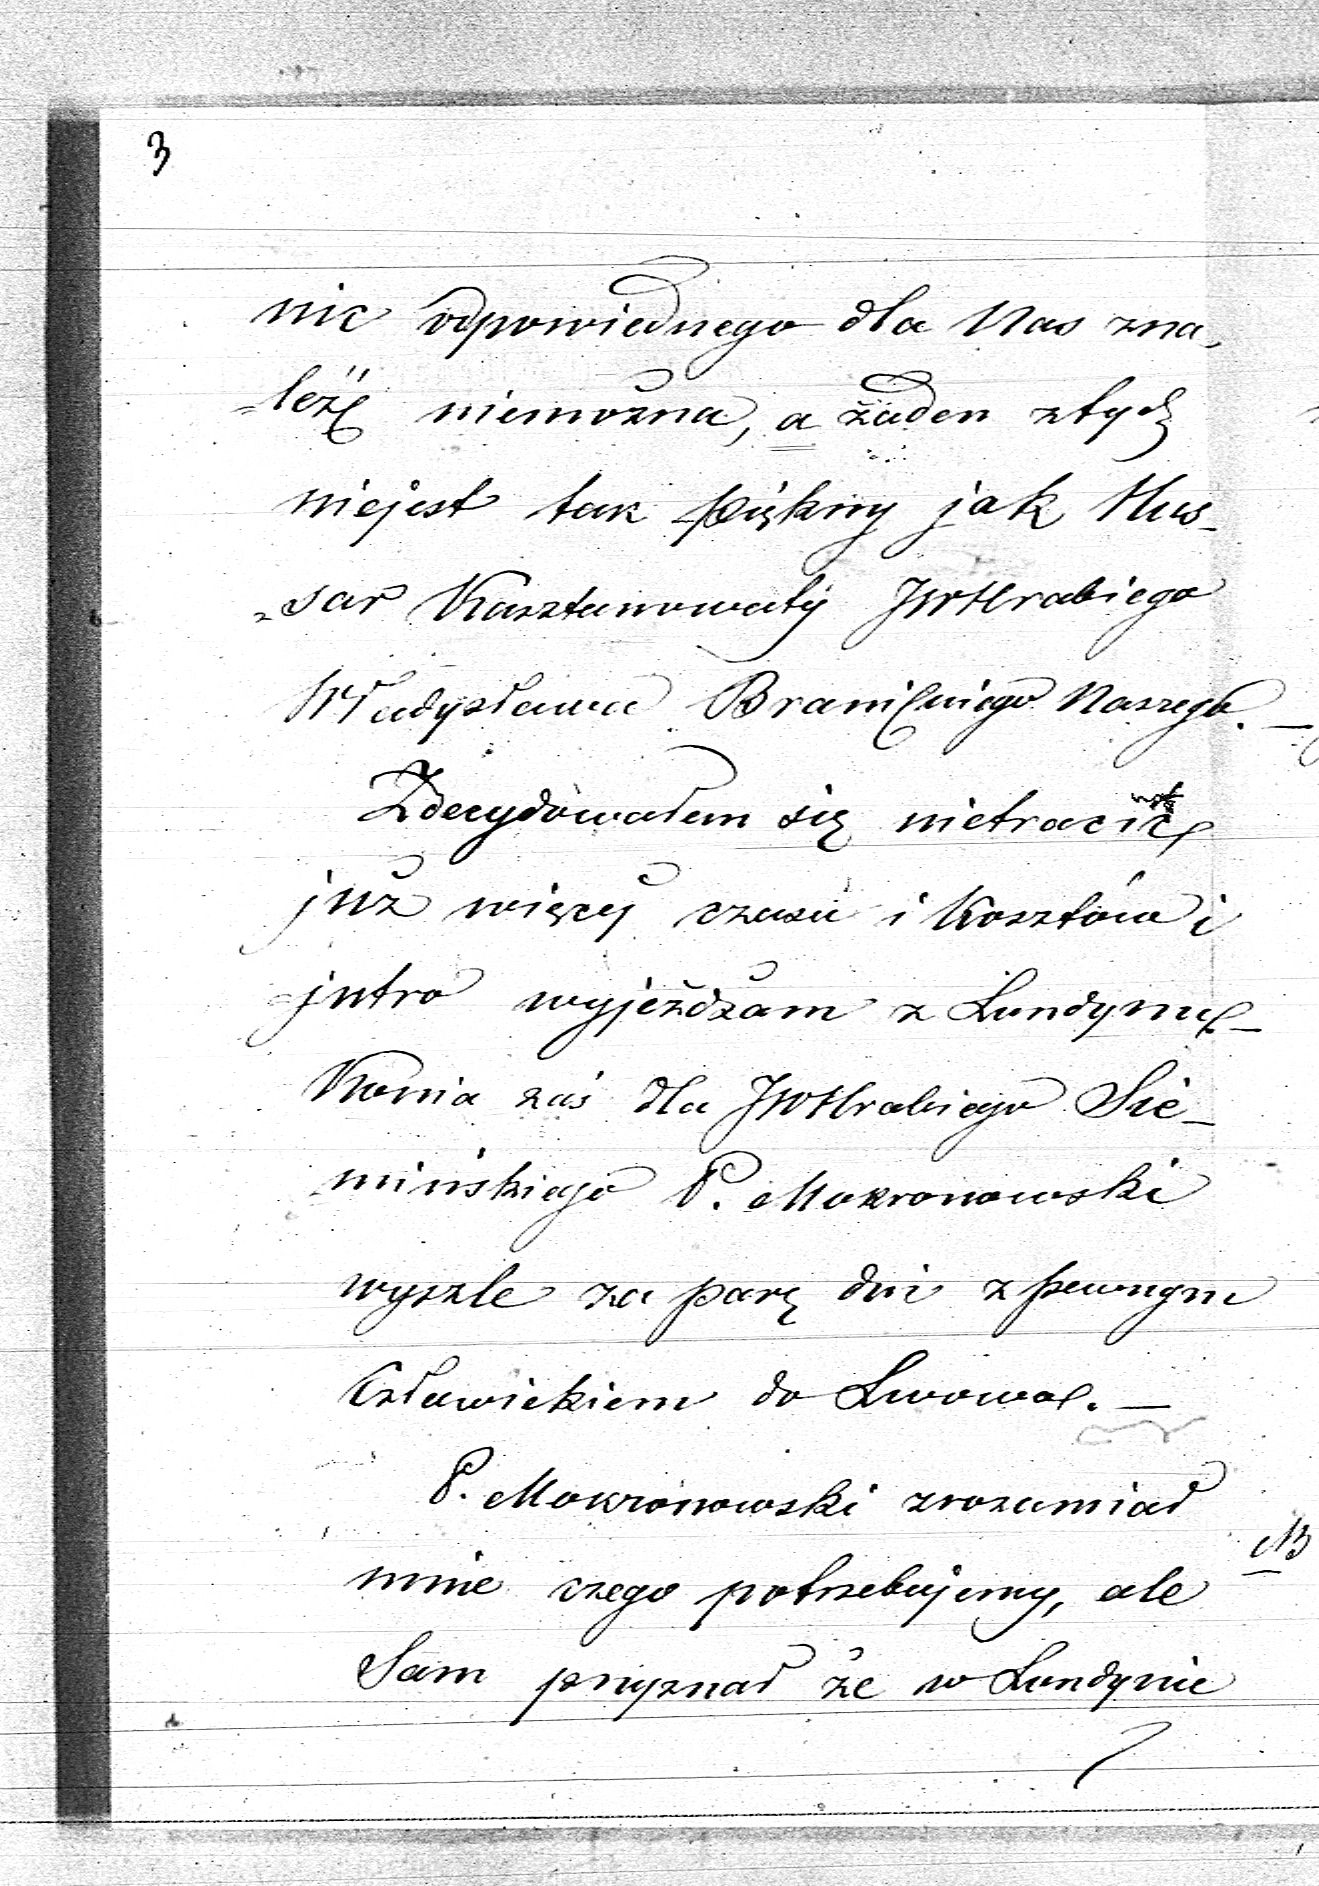 3
nic odpowiednego dla Nas zna-
-leźć niemożna, a żaden z tych
niejest tak piękny jak Hus-
-sar Kasztanowaty JWHrabiego
Władysława Branickiego Naszego. —
Zdecydowałem się nietracić
już więcej czasu i kosztów i
jutro wyjeżdżam z Londynu. —
Konia zaś dla JWHrabiego Sie-
-mińskiego P. Mokronowski
wyszle za parę dni z pewnym
Człowiekiem do Lwowa. —
P. Mokronowski zrozumiał
mnie czego potrzebujemy, ale
NB
Sam przyznał że w Londynie